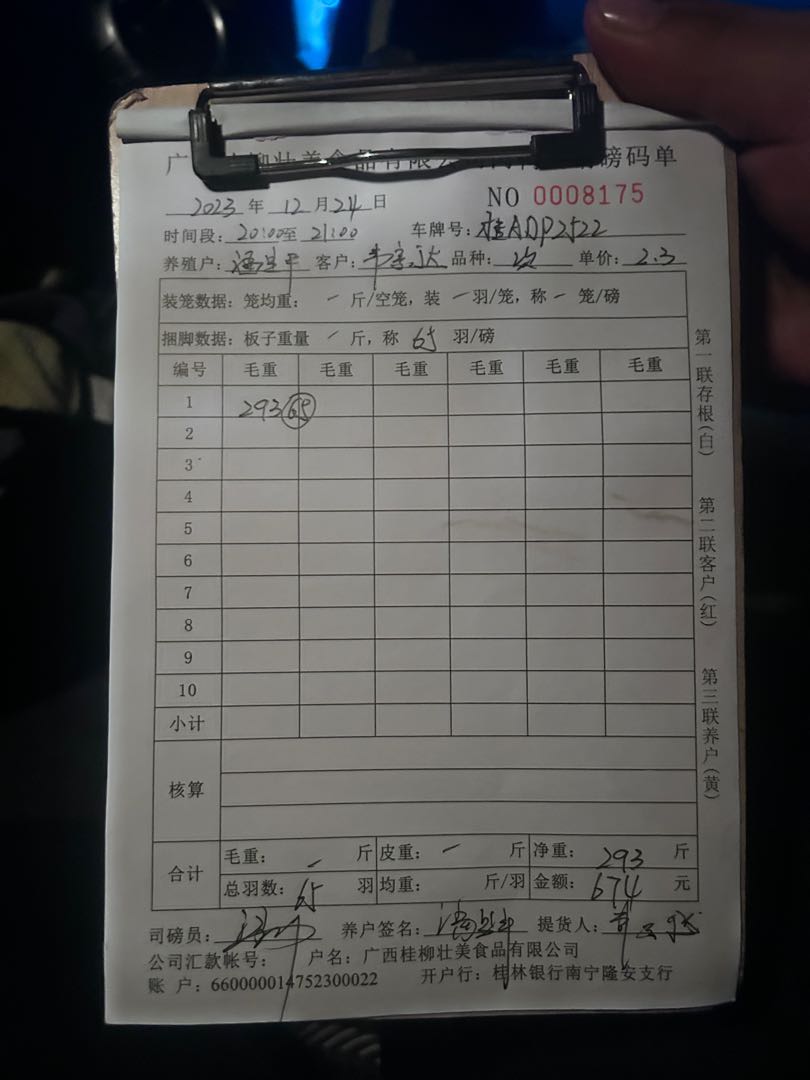 壮美食品有限 磅码单
NO 0008175
2023 年 12 月 24 日
时间段: 20:00至 21:00 车牌号: 桂ADP2522
养殖户: 客户: 品种: 次 单价: 2.3
装笼数据: 笼均重: 一 斤/空笼, 装 一 羽/笼, 称 一 笼/磅
捆脚数据: 板子重量 一 斤, 称 65 羽/磅
编号 毛重 毛重 毛重 毛重 毛重 毛重
1 293 65
2
3
4
5
6
7
8
9
10
小计
核算
合计 毛重: 一 斤 皮重: 一 斤 净重: 293 斤
总羽数: 65 羽 均重: 斤/羽 金额: 674 元
司磅员: 养户签名: 提货人:
公司汇款帐号: 户名: 广西桂柳壮美食品有限公司
账 户: 660000014752300022 开户行: 桂林银行南宁隆安支行
第一联存根(白)
第二联客户(红)
第三联养户(黄)